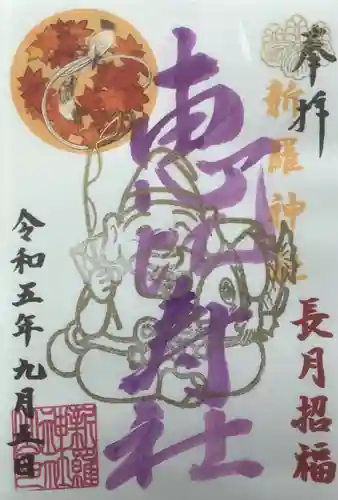 奉拝
新羅神社
長月招福
恵比寿社
令和五年九月三日
新羅神社